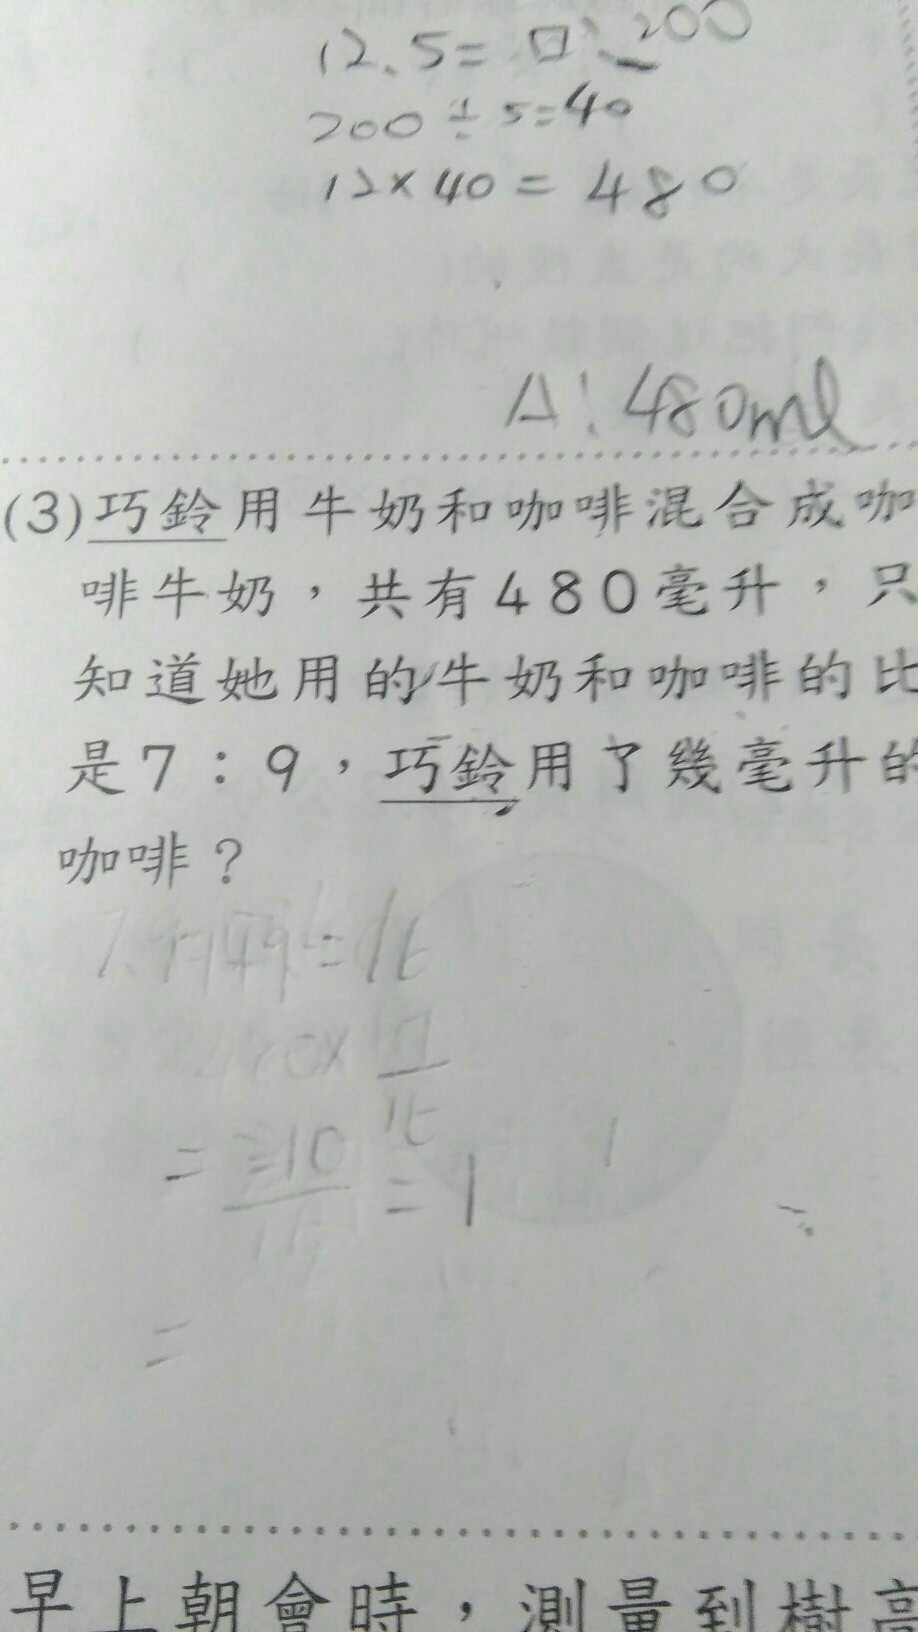 12.5=□:200
200÷5=40
12×40=480
A:480ml
(3)巧鈴用牛奶和咖啡混合成咖
啡牛奶，共有480毫升，只
知道她用的牛奶和咖啡的比
是7：9，巧鈴用了幾毫升的
咖啡？
早上朝會時，測量到樹高